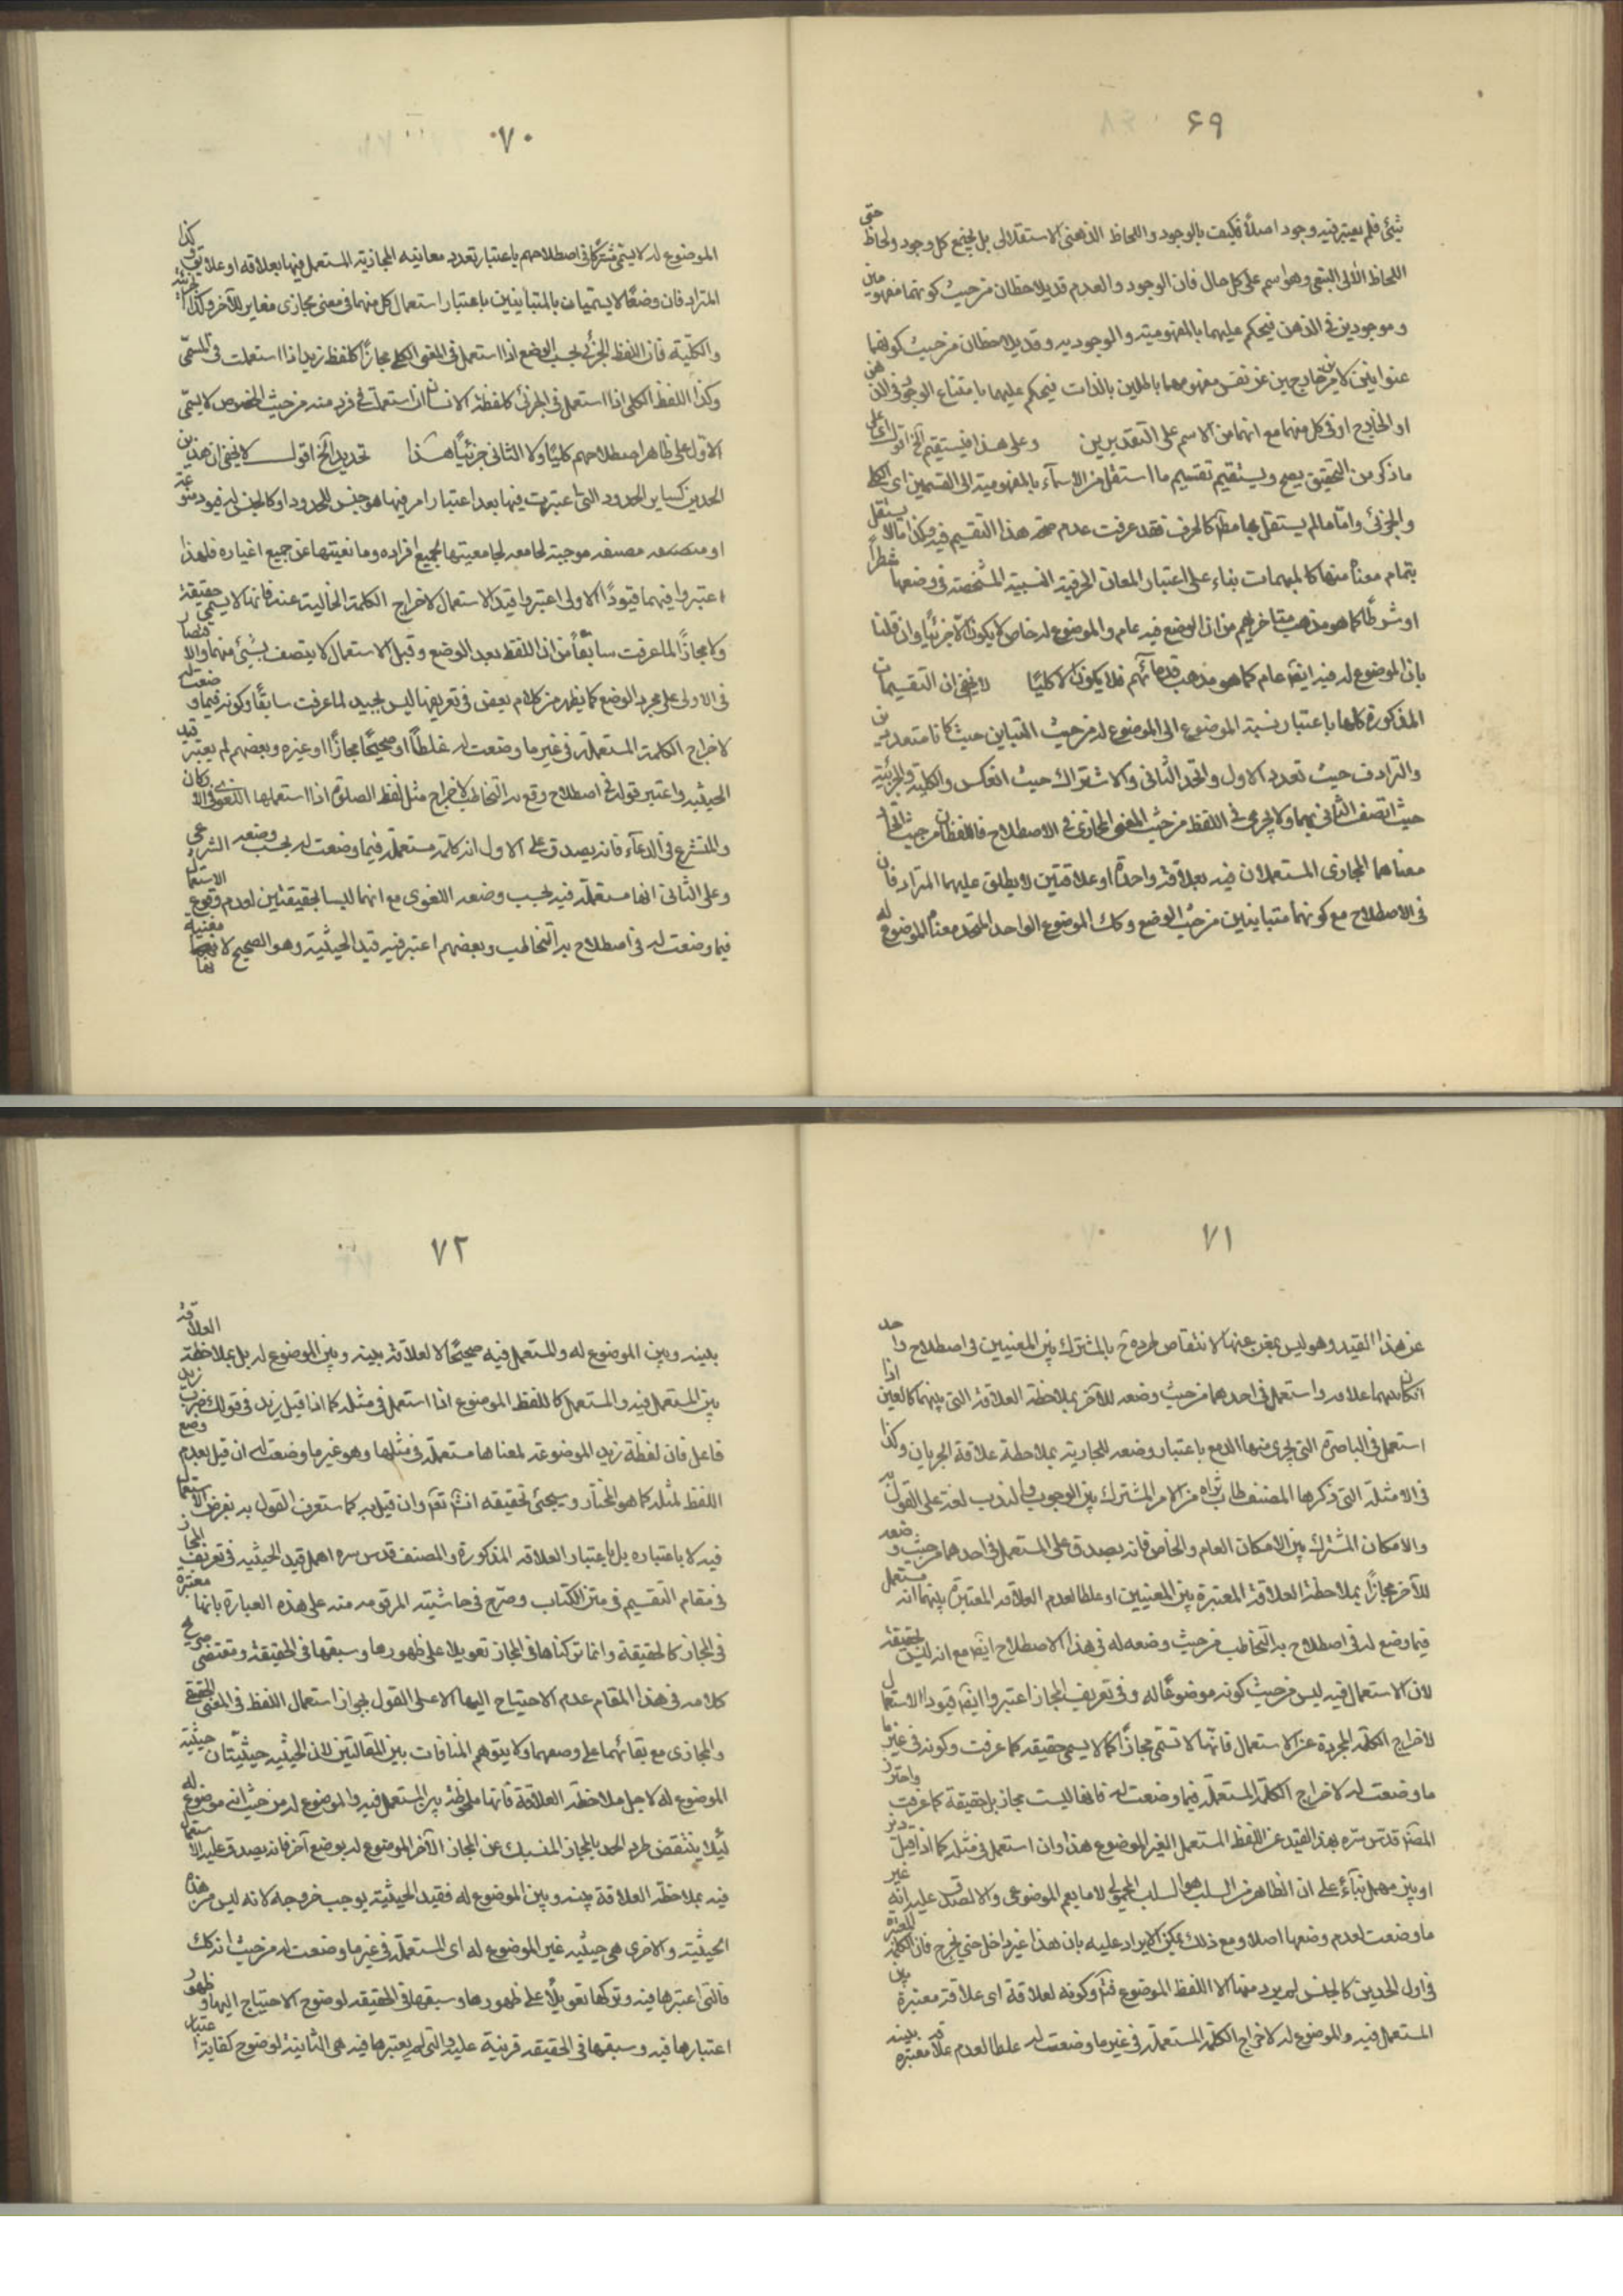 ۶۹
شئ فلم يعتبر فيه وجود اصلاً فكيف بالوجود واللحاظ الذهنى الاستقلالى بل يجتمع كل وجود ولحاظ حتى
اللحاظ الآلى التبعى وهو اسم على كل حال فان الوجود والعدم قد يلاحظان من حيث كونهما مفهومين
وموجودين فى الذهن فيحكم عليهما بالمفهومية والموجودية وقد يلاحظان من حيث كونهما
عنوانين لامرين خارجين عن نفس مفهومهما بالملين بالذات فيحكم عليهما بامتناع الوجود فى الذهن
او الخارج او فى كل منهما مع انهما من الاسم على التقديرين وعلى هذا فيستقيم الخ اقول اى على
ما ذكر من التحقيق يصح ويستقيم تقسيم ما استقل من الاسماء بالمفهومية الى القسمين اى الكلى
والجزئى واما ما لم يستقل بها مطلقا كالحرف فقد عرفت عدم صحة هذا التقسيم فيه وكذا ما لا يستقل
بتمام معناه منها كالمبهمات بناء على اعتبار المعانى الحرفية النسبية المشخصة فى وضعها شطراً
او شرطاً كما هو مذهب متاخريهم من ان الوضع فيه عام والموضوع له خاص لا يكون الا جزئيا وان قلنا
بان الموضوع له فيه ايضا عام كما هو مذهب قدمائهم فلا يكون الا كليّا لا يخفى ان التقسيمات
المذكورة كلها باعتبار نسبة الموضوع الى الموضوع له من حيث التباين حيث كانا متعددين
والترادف حيث تعدد الاول واتحد الثانى والاشتراك حيث انعكس والكلية والجزئية
حيث اتصف الثانى بهما ولا يجرى فى اللفظ من حيث المعنى المجازى فى الاصطلاح فاللفظان من حيث اتحاد
معناهما المجازى المستعملان فيه بعلاقة واحدة او علاقتين لا يطلق عليهما المترادفان
فى الاصطلاح مع كونهما متباينين من حيث الوضع وكك الموضوع الواحد المتحد معناه الموضوع له
۷۰
الموضوع له لا يسمى مشتركاً فى اصطلاحهم باعتبار تعدد معانيه المجازية المستعمل فيها بعلاقة او علايق كذا
المترادفان وضعًا لا يسميان بالمتباينين باعتبار استعمال كل منهما فى معنى مجازى مغاير للآخر وكذا الجزئية
والكلية فان اللفظ الجزئى بحسب الوضع اذا استعمل فى المعنى الكلى مجازاً كلفظ زيد اذا استعملت فى المسمّى
وكذا اللفظ الكلى اذا استعمل فى الجزئى كلفظة الانسان اذا استعملت فى فرد منه من حيث الخصوص لا يسمّى
الاول على ظاهر اصطلاحهم كليّا ولا الثانى جزئيًا هذا تحديد الخ اقول لا يخفى ان هذين
الحدين كساير الحدود التى اعتبرت فيها بعد اعتبار امر فيها هو جنس للمحدود او كالجنس له قيود متنوعة
او مصنفة موجبة لجامعيتها لجميع افراده ومانعيتها عن جميع اغياره فلهذا
اعتبروا فيهما قيودًا الاولى اعتبروا قيد الاستعمال لاخراج الكلمة الخالية عنه فانها لا يسمى حقيقة
ولا مجازًا لما عرفت سابقاً من ان اللفظ بعد الوضع وقبل الاستعمال لا يتصف بشئ منهما والاقتصار
فى الاولى على مجرد الوضع كما يظهر من كلام بعض فى تعريفها ليس بجيد لما عرفت سابقاً وكونه فيما وضعت له
لاخراج الكلمة المستعملة فى غير ما وضعت له غلطاً او صحيحًا مجازًا او غيره وبعضهم لم يعتبر قيد
الحيثية واعتبر قوله فى اصطلاح وقع به التخاطب لاخراج مثل لفظ الصلوة اذا استعملها اللغوى فى الاركان
والمتشرع فى الدعآء فانه يصدق على الاول انه كلمة مستعملة فيما وضعت له بحسب وضعه الشرعى
وعلى الثانى انها مستعملة فيه بحسب وضعه اللغوى مع انهما ليسا بحقيقتين لعدم وقوع الاستعمال
فيما وضعت له فى اصطلاح به التخاطب وبعضهم اعتبر فيه قيد الحيثية وهو الصحيح لانها مغنية
۷۱
عن هذا القيد وهو ليس بمغن عنها لانتقاض طرده ح بالمشترك بين المعنيين فى اصطلاح واحد
اذا كان بينهما علاقة واستعمل فى احدهما من حيث وضعه للآخر بملاحظة العلاقة التى بينهما كالعين اذا
استعمل فى الباصرة التى يجرى منها الدمع باعتبار وضعه للجارية بملاحظة علاقة الجريان وكذا
فى الامثلة التى ذكرها المصنف طاب ثراه من الامر المشترك بين الوجوب والندب لغة على القول به
والامكان المشترك بين الامكان العام والخاص فانه يصدق على المستعمل فى احدهما من حيث وضعه
للآخر مجازاً بملاحظة العلاقة المعتبرة بين المعنيين او غلطا لعدم العلاقة المعتبرة بينهما انه مستعمل
فيما وضع له فى اصطلاح به التخاطب من حيث وضعه له فى هذا الاصطلاح ايضا مع انه ليس بحقيقة
لان الاستعمال فيه ليس من حيث كونه موضوعًا له وفى تعريف المجاز اعتبروا ايضا قيودا الاستعمال
لاخراج الكلمة المجردة عن الاستعمال فانها لا تسمى مجازًا كما لا يسمى حقيقة كما عرفت وكونه فى غير ما
ما وضعت له لاخراج الكلمة المستعملة فيما وضعت له فانها ليست بمجاز بل حقيقة كما عرفت واحترز
المصنف قدس سره بهذا القيد عن اللفظ المستعمل الغير الموضوع هذا وان استعمل فى مثله كما اذا قيل ديز
او بيز مهمل بنآء على ان الظاهر من السلب هو السلب المحمولى لا ما يعم الموضوعى والا لصدق عليه انه غير
ما وضعت لعدم وضعها اصلا ومع ذلك يمكن الايراد عليه بان هذا غير داخل حتى يخرج فان الكلمة المعتبرة
فى اول الحدين كالجنس لم يرد منها الا اللفظ الموضوع فتم وكونه لعلاقة اى علاقة معتبرة بين
المستعمل فيه والموضوع له لاخراج الكلمة المستعملة فى غير ما وضعت له غلطا لعدم علاقة معتبرة بينه
۷۲
بينه وبين الموضوع له والمستعمل فيه صحيحًا لا لعلاقة بينه وبين الموضوع له بل بملاحظة العلاقة
بين المستعمل فيه والمستعمل كاللفظ الموضوع اذا استعمل فى مثله كما اذا قيل زيد فى قولك ضرب زيد
فاعل فان لفظة زيد الموضوعة لمعناها مستعملة فى مثلها وهو غير ما وضعت له ان قيل بعدم وضع
اللفظ لمثله كما هو المختار وسيجئ تحقيقه انشآء الله تعالى وان قيل به كما ستعرف القول به بفرض الاستعمال
فيه لا باعتباره بل باعتبار العلاقة المذكورة والمصنف قدس سره اهمل قيد الحيثية فى تعريف المجاز
فى مقام التقسيم فى متن الكتاب وصرّح فى حاشيته المرقومة منه على هذه العبارة بانها معتبرة
فى المجاز كالحقيقة وانما تركناها فى المجاز تعويلا على ظهورها وسبقها فى الحقيقة ومقتضى صريح
كلامه فى هذا المقام عدم الاحتياج اليها الا على القول بجواز استعمال اللفظ فى المعنى الحقيقى
والمجازى مع بقائهما على وصفهما ولا يتوهم المنافات بين المقالتين لان الحيثية حيثيتان حيثية
الموضوع له لاجل ملاحظة العلاقة فانها ملحوظة بين المستعمل فيه والموضوع له من حيث انه موضوع له
لئلا ينتقض طرد الحد بالمجاز المنسبك عن المجاز الآخر الموضوع له بوضع آخر فانه يصدق عليه الاستعمال
فيه بملاحظة العلاقة بينه وبين الموضوع له فقيد الحيثية يوجب خروجه لانه ليس من هذه
الحيثية والاخرى هى حيثية غير الموضوع له اى المستعملة فى غير ما وضعت له من حيث انه كك
فالتى اعتبرها فيه وتركها تعويلاً على ظهورها وسبقها فى الحقيقة لوضوح الاحتياج اليها وظهور
اعتبارها فيه وسبقها فى الحقيقة قرينة عليه والتى لم يعتبرها فيه هى الثانية لوضوح كفاية اعتبار